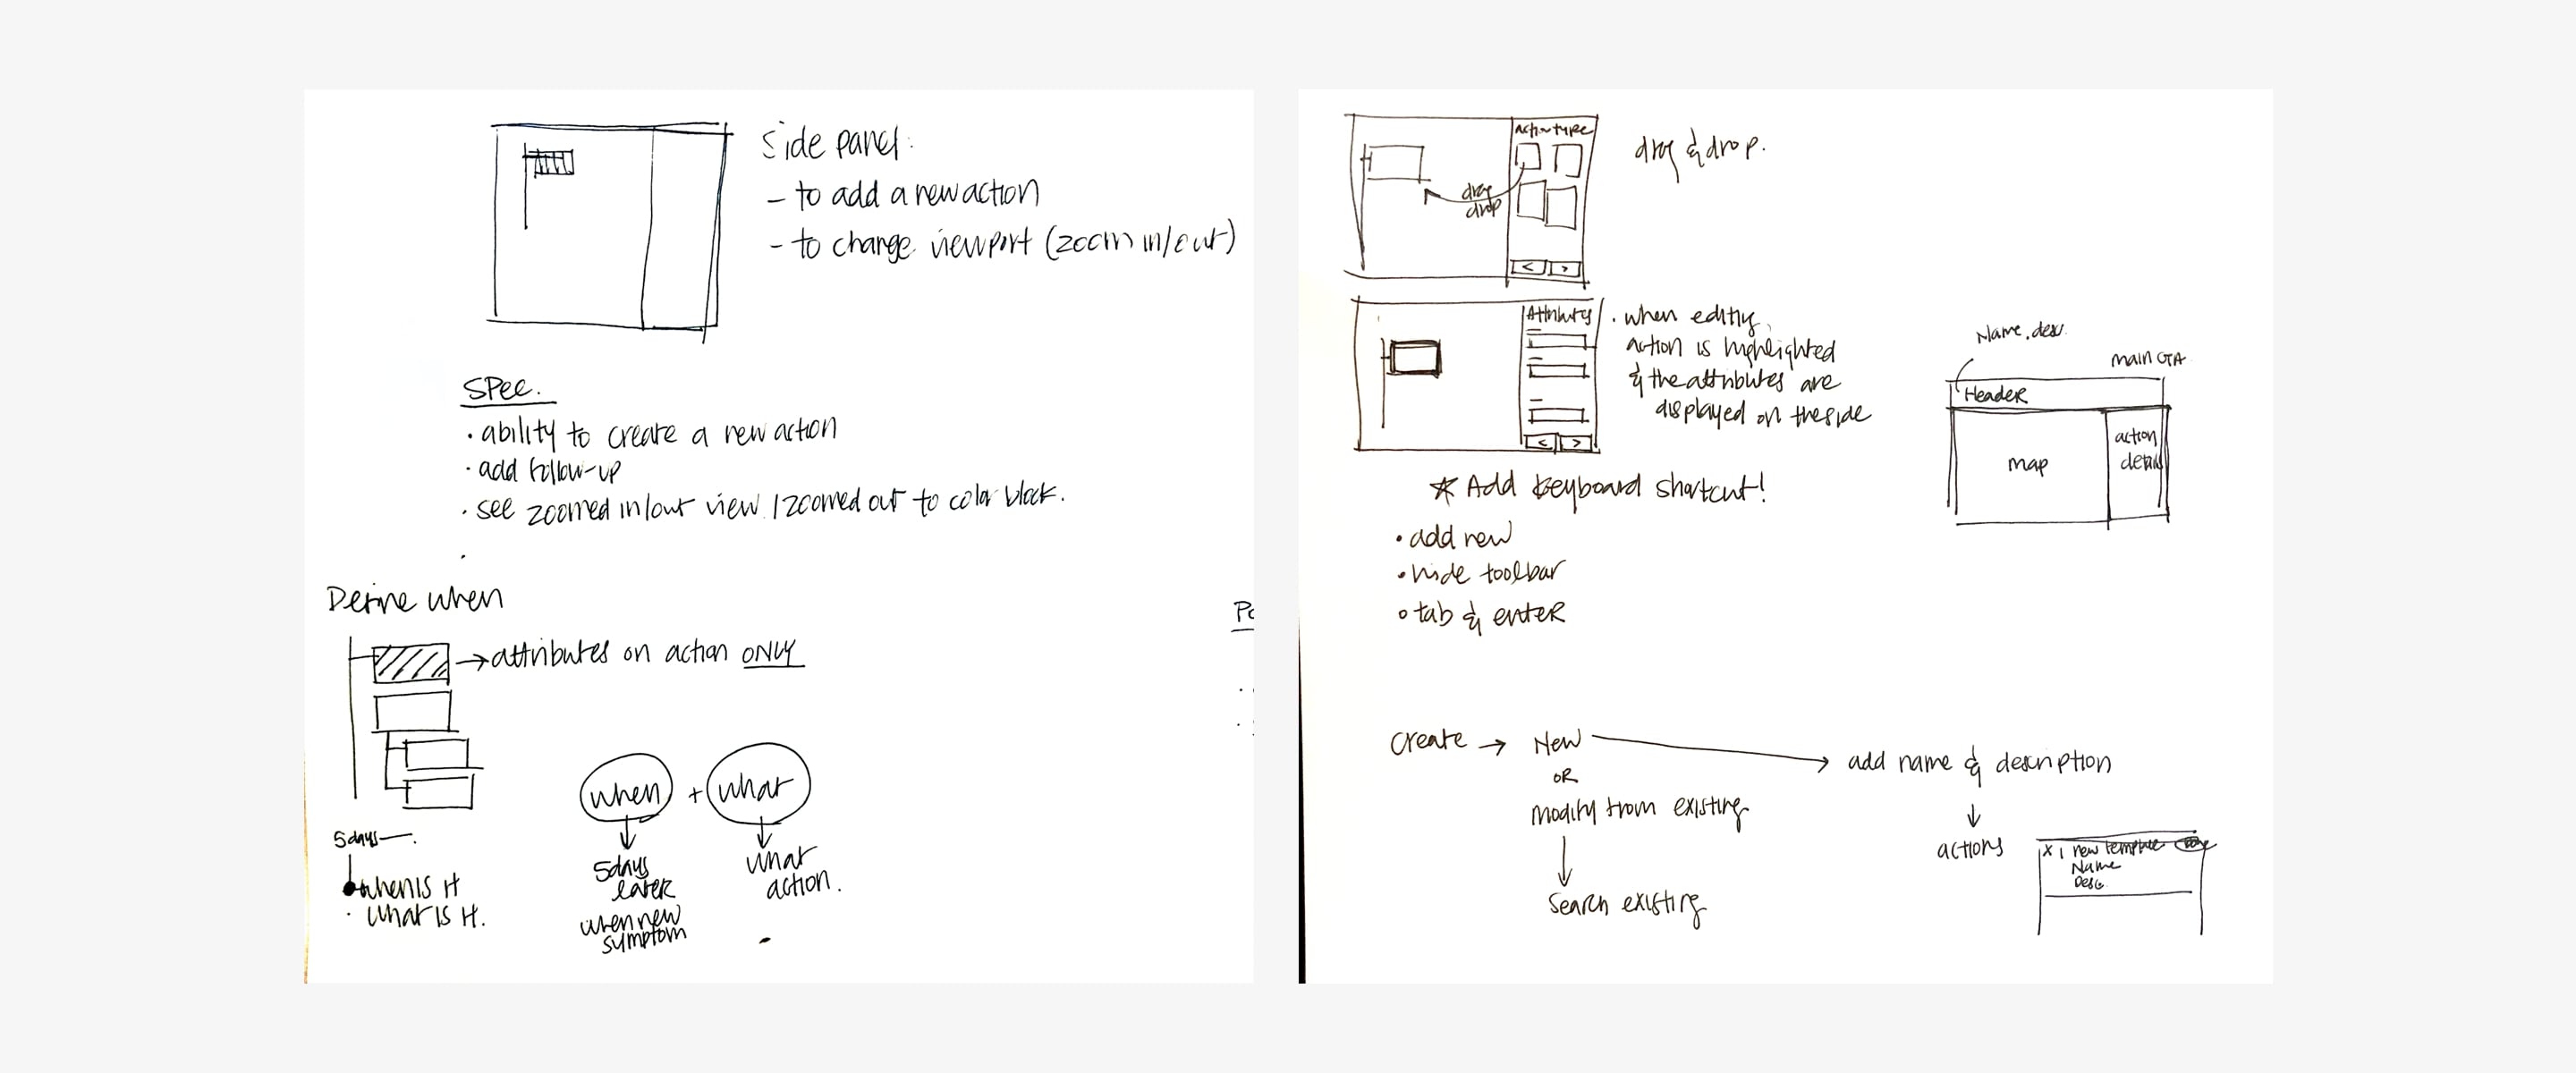 Side panel:
- to add a new action
- to change viewport (zoom in/out)
Spec.
· ability to create a new action
· add follow-up
· see zoomed in/out view / zoomed out to color block.
Define when
→ attributes on action ONLY
5days
when is it
· what is it.
when + what
5days
later
when new
symptom
what
action.
Action type
drag
drop
< >
drag & drop.
Attributes
< >
· when editing,
action is highlighted
& the attributes are
displayed on the side
Name, desc.
main CTA
Header
map
action
detail
★ Add keyboard shortcut!
· add new
· hide toolbar
· tab & enter
create → New → add name & description
OR
modify from existing
Search existing
actions
x | new template
Name
Desc.